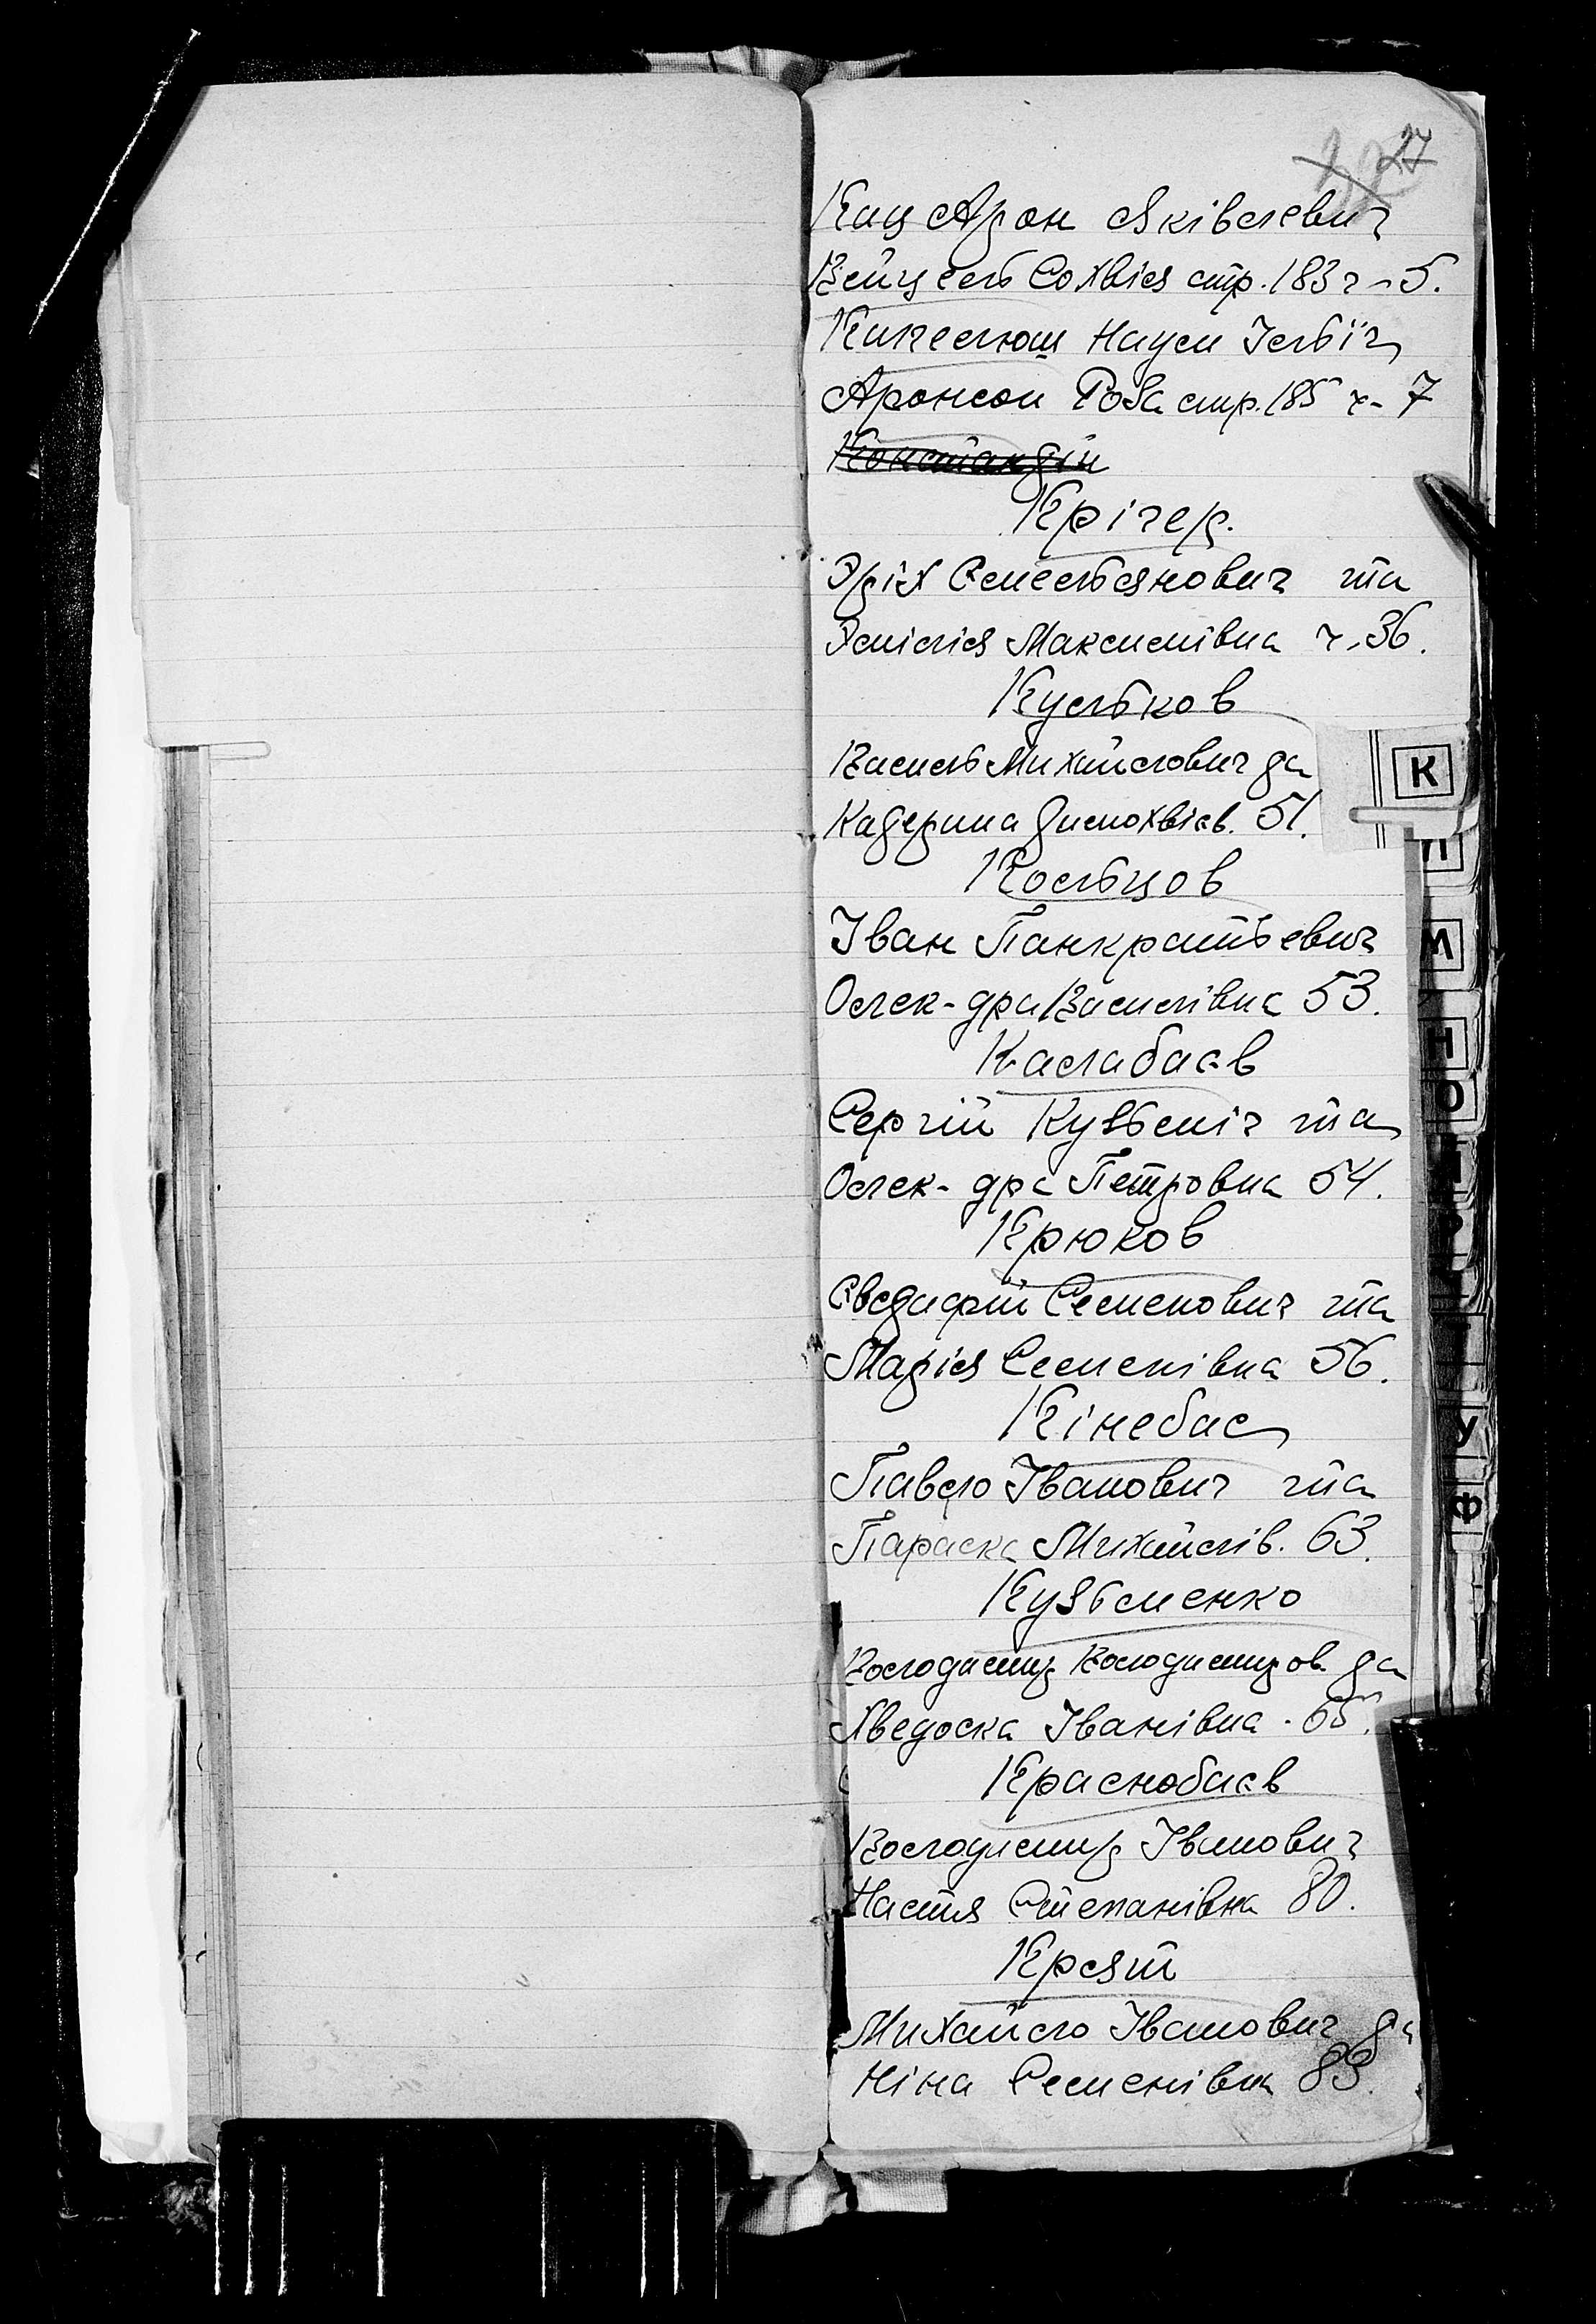 27
Кац Арон Яківлевич
Вейцель Сохвія стр. 183 ч-5.
Кипелюш Наум Ільїч
Аронсон Роза стр. 185 ч-7
Константін
Крігер.
Эріх Емельянович та
Эмілія Максимівна ч. 36.
Кульков
Василь Михайлович да
Кадерина Димохвієв. 51.
К
Кольцов
Іван Панкратьевич
Олек-дра Василівна 53.
М
Калабаєв
Н
Сергій Кузьміч та
О
Олек-дра Петровна 54.
Крюков
Євдифій Семенович та
Марія Семенівна 56.
Кінебас
У
Павло Іванович та
Ф
Параска Михайлів. 63.
Кузьменко
Володимир Володимиров. да
Хведоска Іванівна. 65.
Краснобаєв
Володимир Іванович
Настя Степанівна 80.
Крят
Михайло Іванович да
Ніна Семенівна 83.